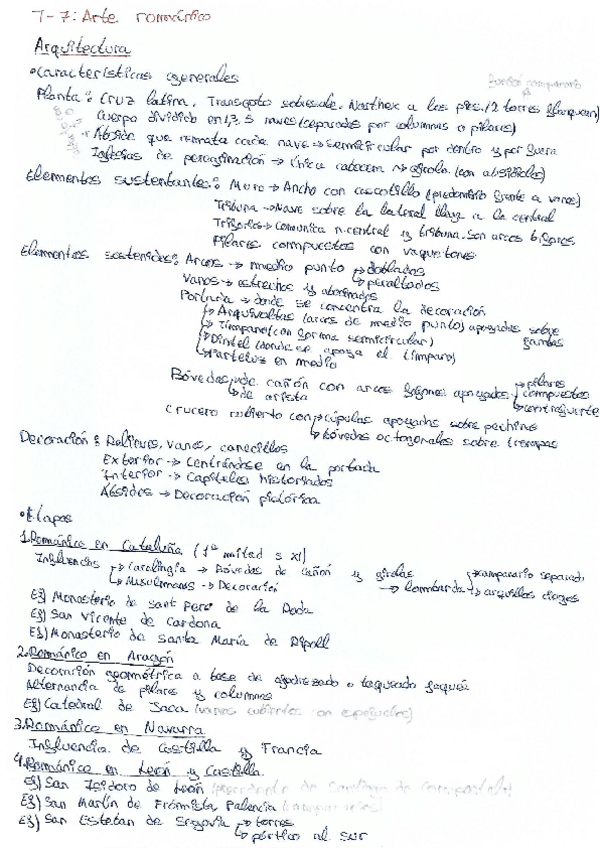 T-7: Arte románico
Arquitectura
• Características generales
Planta: Cruz latina, Transepto sobresale, Narthex a los pies. (2 torres flanquean)
Cuerpo dividido en 1, 3, 5 naves (separadas por columnas o pilares)
Ábside que remata cada nave → semicircular por dentro y por fuera
Iglesias de peregrinación → única cabecera → girola (con absidiolos)
Elementos sustentantes: Muro → Ancho con cascotillo (predominio frente a vanos)
Tribuna → Nave sobre la lateral llega a la central
Triforio → comunica n. central y tribuna. Son arcos bíforos
Pilares compuestos con baquetones
Elementos sostenidos: Arcos → medio punto → doblados
→ peraltados
Vanos → estrechos y abocinados
Portada → donde se concentra la decoración
→ Arquivoltas (arcos de medio punto) apoyadas sobre jambas
→ Tímpano (con forma semicircular)
→ Dintel (donde se apoya el tímpano)
→ parteluz en medio
Bóvedas → de cañón con arcos fajones apoyados → pilares compuestos
→ contrafuerte
→ de arista
Crucero cubierto con → cúpulas apoyadas sobre pechinas
→ bóvedas octogonales sobre trompas
Decoración: Relieves, vanos, canecillos
Exterior → Centrándose en la portada
Interior → Capiteles historiados
Ábsides → Decoración pictórica
• Etapas
1. Románico en Cataluña (1ª mitad s XI)
Influencias → Carolingia → Bóvedas de cañón y girolas
→ Musulmanas → Decoración
→ Lombarda → campanario separado
→ arquillos ciegos
Ej) Monasterio de Sant Pere de la Roda
Ej) San Vicente de Cardona
Ej) Monasterio de Santa María de Ripoll
2. Románico en Aragón
Decoración geométrica a base de ajedrezado o taqueado jaqués
Alternancia de pilares y columnas
Ej) Catedral de Jaca
3. Románico en Navarra
Influencia de Castilla y Francia
4. Románico en León y Castilla
Ej) San Isidoro de León
Ej) San Martín de Frómista Palencia
Ej) San Esteban de Segovia → torres
→ pórtico al sur